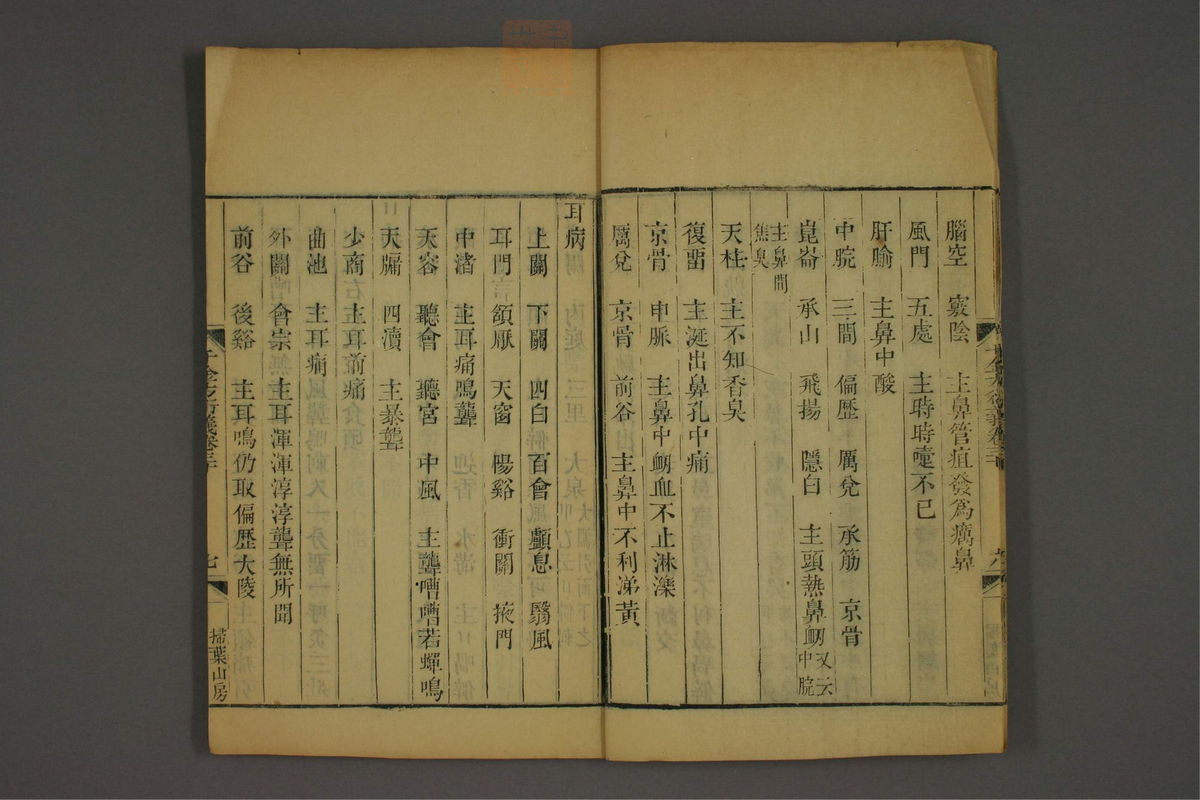 腦空　竅陰　主鼻管疽發爲癘鼻
風門　五處　主時時嚏不已
肝腧　主鼻中酸
中脘　三間　偏歷　厲兌　承筋　京骨
崑崙　承山　飛揚　隱白　主頭熱鼻衄又云中脘
主鼻間焦臭
天柱　主不知香臭
復畱　主涎出鼻孔中痛
京骨　申脈　主鼻中衄血不止淋濼
厲兌　京骨　前谷　主鼻中不利涕黃
耳病
上關　下關　四白　百會　顱息　翳風
耳門　頷厭　天窗　陽谿　衝關　掖門
中渚　主耳痛鳴聾
天容　聽會　聽宮　中風　主聾嘈嘈若蟬鳴
天牖　四瀆　主暴聾
少商　主耳前痛
曲池　主耳痛
外關　會宗　主耳渾渾淳淳聾無所聞
前谷　後谿　主耳鳴仍取偏歷大陵
七
掃葉山房